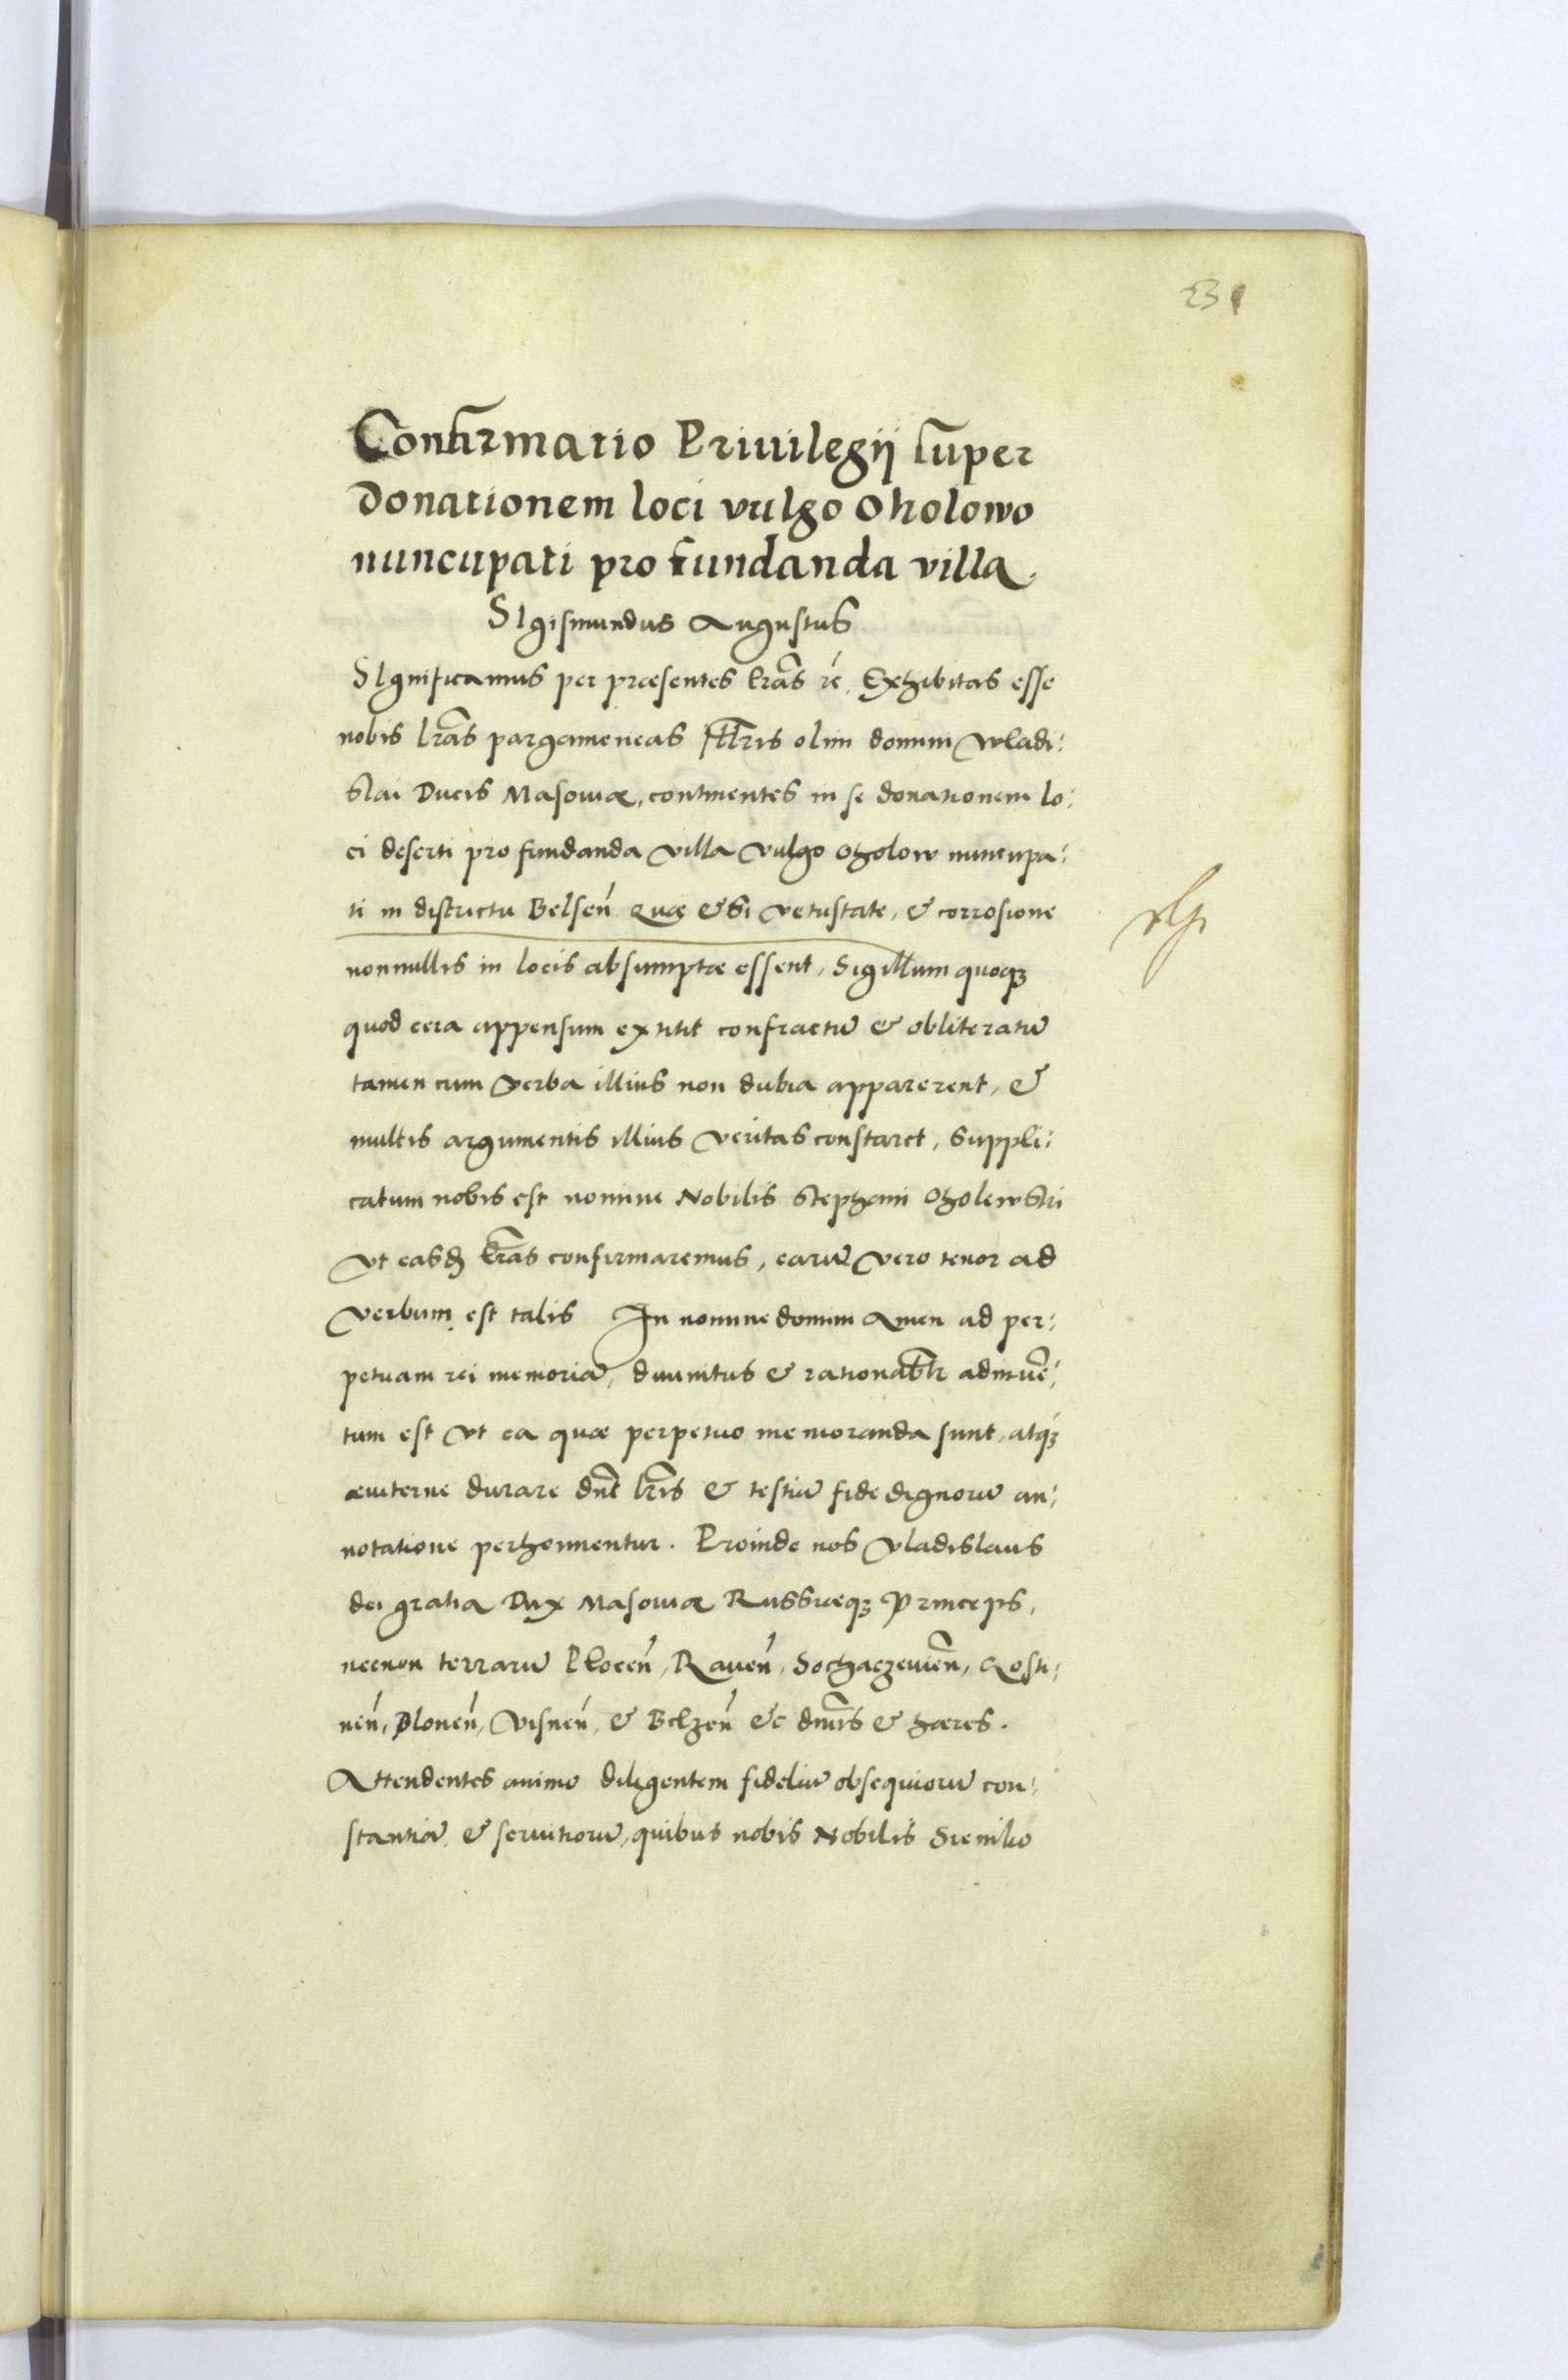 231
Confirmatio Priuilegij super
donationem loci vulgo Oholowo
nuncupati pro fundanda villa.
SIgismundus Augustus
SIgnificamus per præsentes lrãs rć. Exhibitas esse
nobis lrãs pargameneas Illris olim domini Wladi:
slai Ducis Masouiæ, continentes in se donationem lo:
ci deserti pro fundanda villa vulgo Oholow nuncupa:
ti in districtu Belseń. Quæ etsi vetustate, & corrosione
nonnullis in locis absumptæ essent, Sigillum quoq3
quod cera appensum extitit confractũ & obliteratũ
tamen cum verba illius non dubia apparerent, &
multis argumentis illius veritas constaret, suppli:
catum nobis est nomine Nobilis Stephani Oholewski
vt easd lrãs confirmaremus, earũ vero tenor ad
verbum est talis In nomine domini Amen ad per:
petuam rei memoriã, diuinitus & rationablr adinuẽ:
tum est vt ea quæ perpetuo memoranda sunt, atq3
æuiterne durare dñt lrĩs & testiũ fide dignorũ an:
notatione perhennentur. Proinde nos Vladislaus
dei gratia Dux Masouiæ Russiæq3 Princeps,
necnon terrarũ Ploceń, Raueń, Sochaczeuieñ, Gosti:
neń, Ploneń, Visneń, & Belzeń &c dñis & hæres.
Attendentes animo diligentem fideliũ obsequiorũ con:
stantiã, & seruitiorũ, quibus nobis Nobilis Sienko